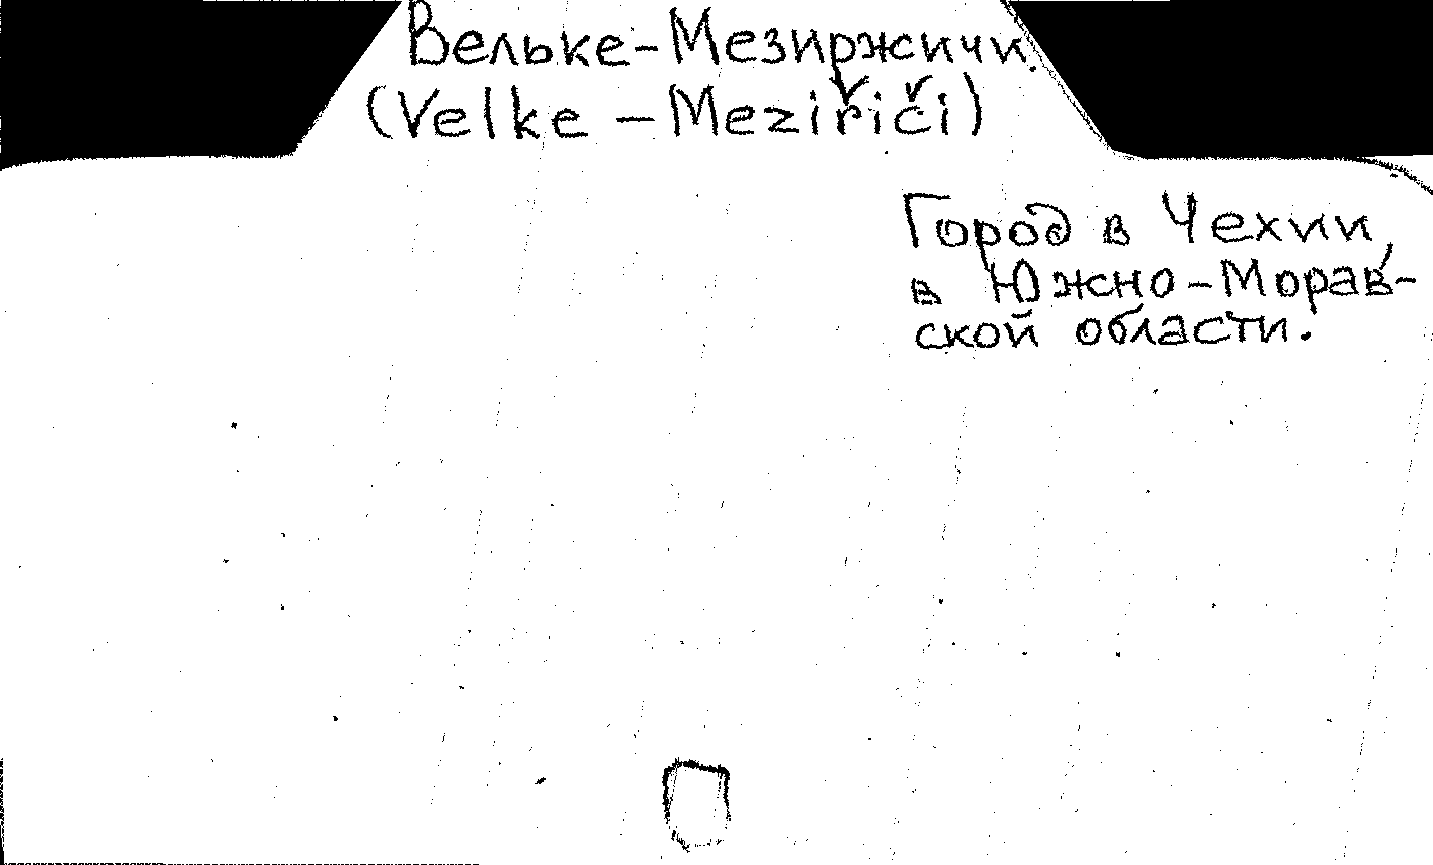 Вельке-Мезиржичи.
(Velke-Meziřiči)
Город в Чехии,
в Южно-Морав-
ской области.